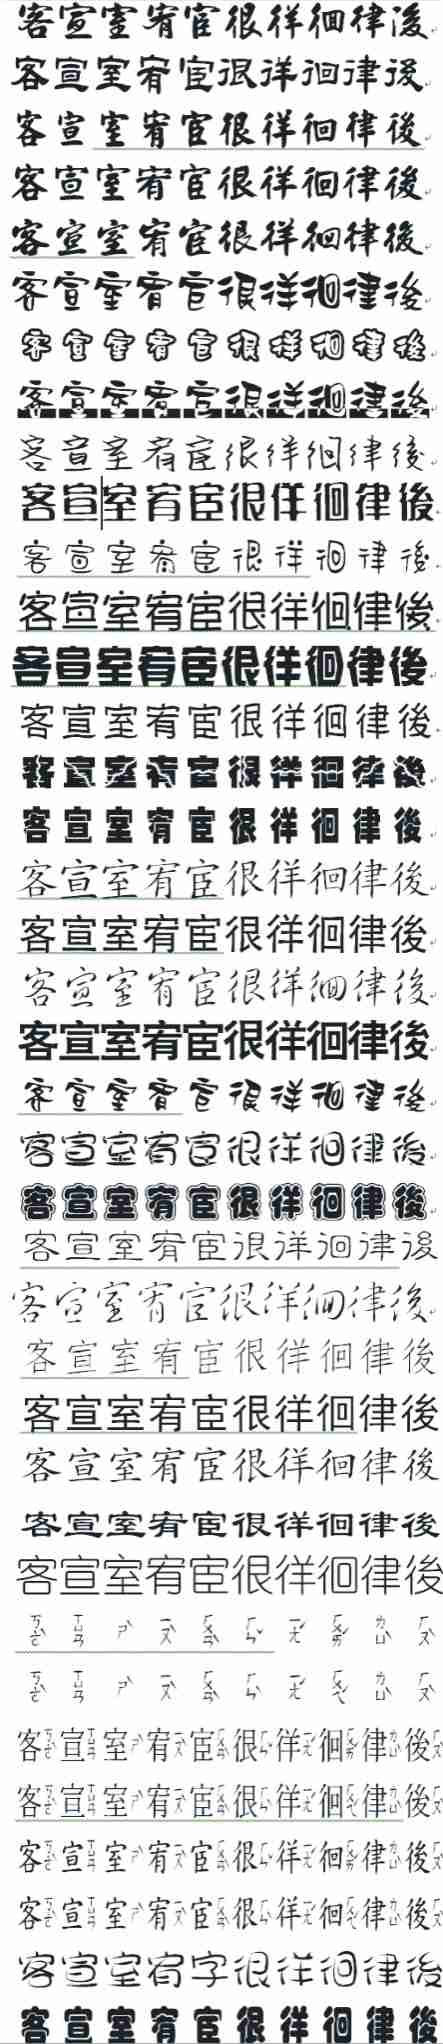 客宣室宥宦很徉徊律後
客宣室宥宦很徉徊律後
客宣室宥宦很徉徊律後
客宣室宥宦很徉徊律後
客宣室宥宦很徉徊律後
客宣室宥宦很徉徊律後
客宣室宥宦很徉徊律後
客宣室宥宦很徉徊律後
客宣室宥宦很徉徊律後
客宣室宥宦很徉徊律後
客宣室宥宦很徉徊律後
客宣室宥宦很徉徊律後
客宣室宥宦很徉徊律後
客宣室宥宦很徉徊律後
客宣室宥宦很徉徊律後
客宣室宥宦很徉徊律後
客宣室宥宦很徉徊律後
客宣室宥宦很徉徊律後
客宣室宥宦很徉徊律後
客宣室宥宦很徉徊律後
客宣室宥宦很徉徊律後
客宣室宥宦很徉徊律後
客宣室宥宦很徉徊律後
客宣室宥宦很徉徊律後
客宣室宥宦很徉徊律後
客宣室宥宦很徉徊律後
客宣室宥宦很徉徊律後
客宣室宥宦很徉徊律後
客宣室宥宦很徉徊律後
客宣室宥宦很徉徊律後
客宣室宥宦很徉徊律後
客宣室宥宦很徉徊律後
客宣室宥宦很徉徊律後
客宣室宥宦很徉徊律後
客宣室宥字很徉徊律後
客宣室宥宦很徉徊律後